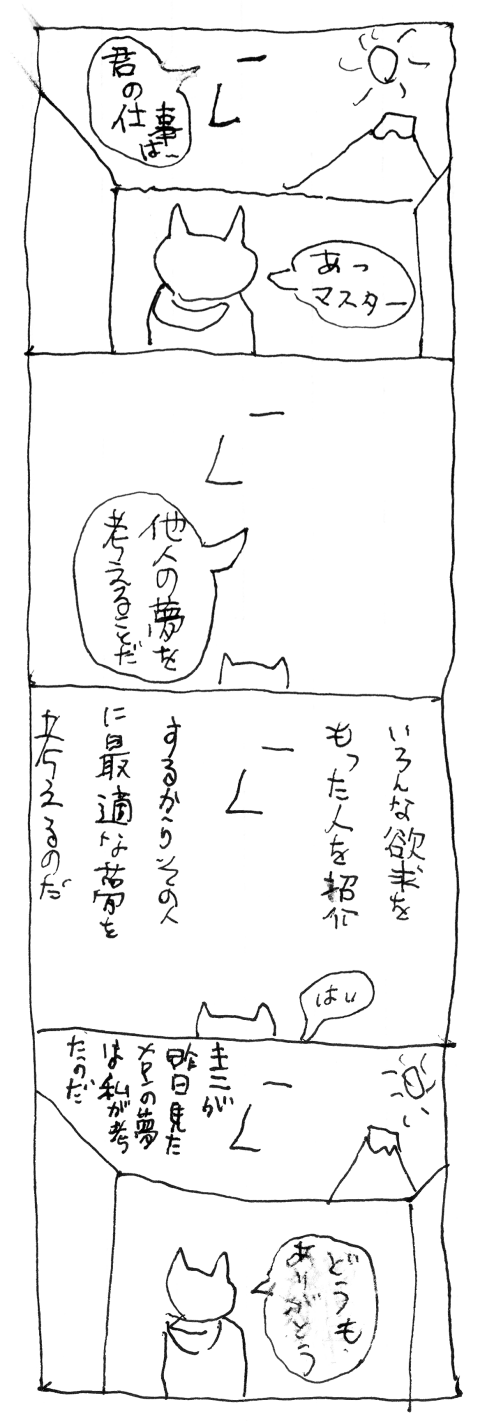 君の
仕
事
は、
あっ
マスター
他人の夢を
考えることだ
いろんな欲求を
もった人を紹介
するからその人
に最適な夢を
考えるのだ
はい
キミが
昨日見た
の夢
は私が考
たのだ
どうも、
ありがとう